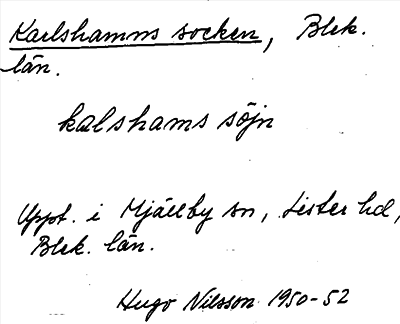 Karlshamns socken, Blek.
län.
kalshams söjn
Uppt. i Mjällby sn, Lister hd,
Blek. län.
Hugo Nilsson 1950-52